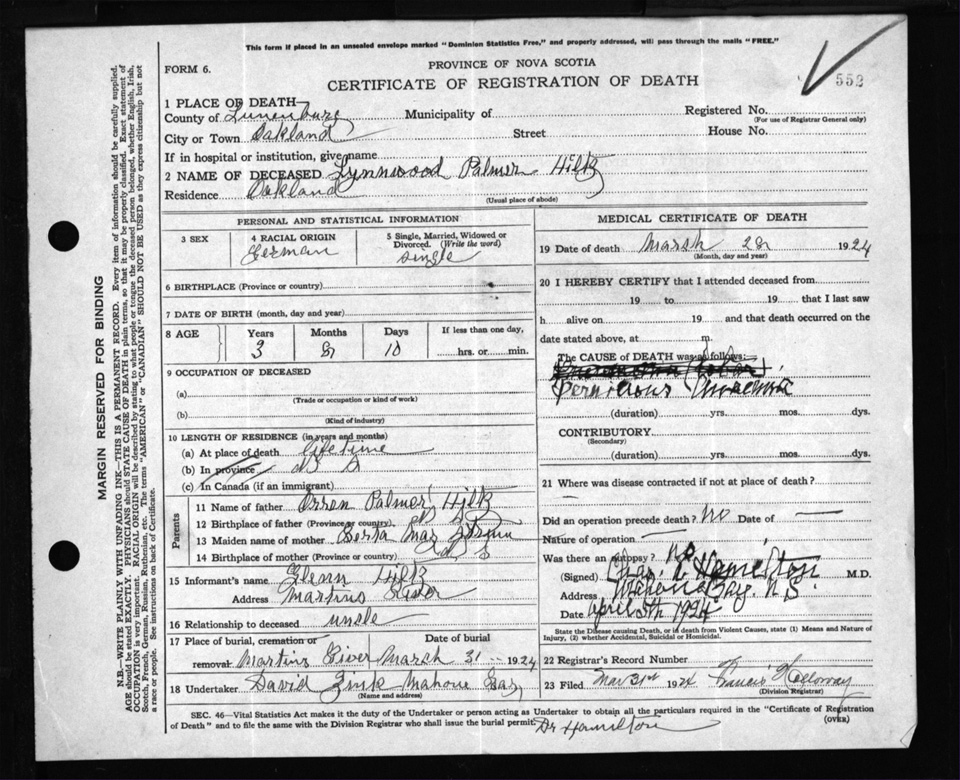 This form if placed in an unsealed envelope marked "Dominion Statistics Free," and properly addressed, will pass through the mails "FREE."
FORM 6.
PROVINCE OF NOVA SCOTIA
CERTIFICATE OF REGISTRATION OF DEATH
552
1 PLACE OF DEATH
County of Lunenburg Municipality of Registered No.
(For use of Registrar General only)
City or Town Oakland Street House No.
If in hospital or institution, give name
2 NAME OF DECEASED Lynnwood Palmer Hiltz
Residence Oakland
(Usual place of abode)
PERSONAL AND STATISTICAL INFORMATION
3 SEX 4 RACIAL ORIGIN 5 Single, Married, Widowed or Divorced. (Write the word)
German single
6 BIRTHPLACE (Province or county)
7 DATE OF BIRTH (month, day and year)
8 AGE Years Months Days If less than one day,
3 8 10 hrs. or min.
9 OCCUPATION OF DECEASED
(a)
(Trade or occupation or kind of work)
(b)
(Kind of industry)
10 LENGTH OF RESIDENCE (in years and months)
(a) At place of death life time
(b) In province d o
(c) In Canada (if an immigrant)
Parents
11 Name of father Orren Palmer Hiltz
12 Birthplace of father (Province or country)
13 Maiden name of mother Berta May
14 Birthplace of mother (Province or country)
15 Informant's name Hiltz
Address Martins River
16 Relationship to deceased uncle
17 Place of burial, cremation or removal Date of burial
Martins River Marsh 31 1924
18 Undertaker David Zink Mahone Bay
(Name and address)
MEDICAL CERTIFICATE OF DEATH
19 Date of death Marsh 28 1924
(Month, day and year)
20 I HEREBY CERTIFY that I attended deceased from
19 to 19 that I last saw
h alive on 19 and that death occurred on the
date stated above, at m.
The CAUSE of DEATH was as follows:
Pernicious
(duration) yrs. mos. dys.
CONTRIBUTORY
(Secondary)
(duration) yrs. mos. dys.
21 Where was disease contracted if not at place of death?
Did an operation precede death? No Date of
Nature of operation
Was there an autopsy? no
(Signed) Chas. A Hamilton M.D.
Address Mahone Bay. N.S.
Date April 5th 1924
State the Disease causing Death, or in death from Violent Causes, state (1) Means and Nature of Injury, (2) whether Accidental, Suicidal or Homicidal.
22 Registrar's Record Number
23 Filed Mar 31st 1924 Francis Holloway
(Division Registrar)
SEC. 46—Vital Statistics Act makes it the duty of the Undertaker or person acting as Undertaker to obtain all the particulars required in the "Certificate of Registration
of Death" and to file the same with the Division Registrar who shall issue the burial permit. (OVER)
Dr Hamilton
MARGIN RESERVED FOR BINDING
N.B.—WRITE PLAINLY WITH UNFADING INK—THIS IS A PERMANENT RECORD. Every item of information should be carefully supplied.
AGE should be stated EXACTLY. PHYSICIANS should STATE CAUSE OF DEATH in plain terms, so that it may be properly classified. Exact statement of
OCCUPATION is very important. RACIAL ORIGIN will be described by stating to what people or tongue the deceased person belonged, whether English, Irish,
Scotch, French, German, Russian, Ruthenian, etc. The terms "AMERICAN" or "CANADIAN" SHOULD NOT BE USED as they express citizenship but not
a race or people. See instructions on back of Certificate.